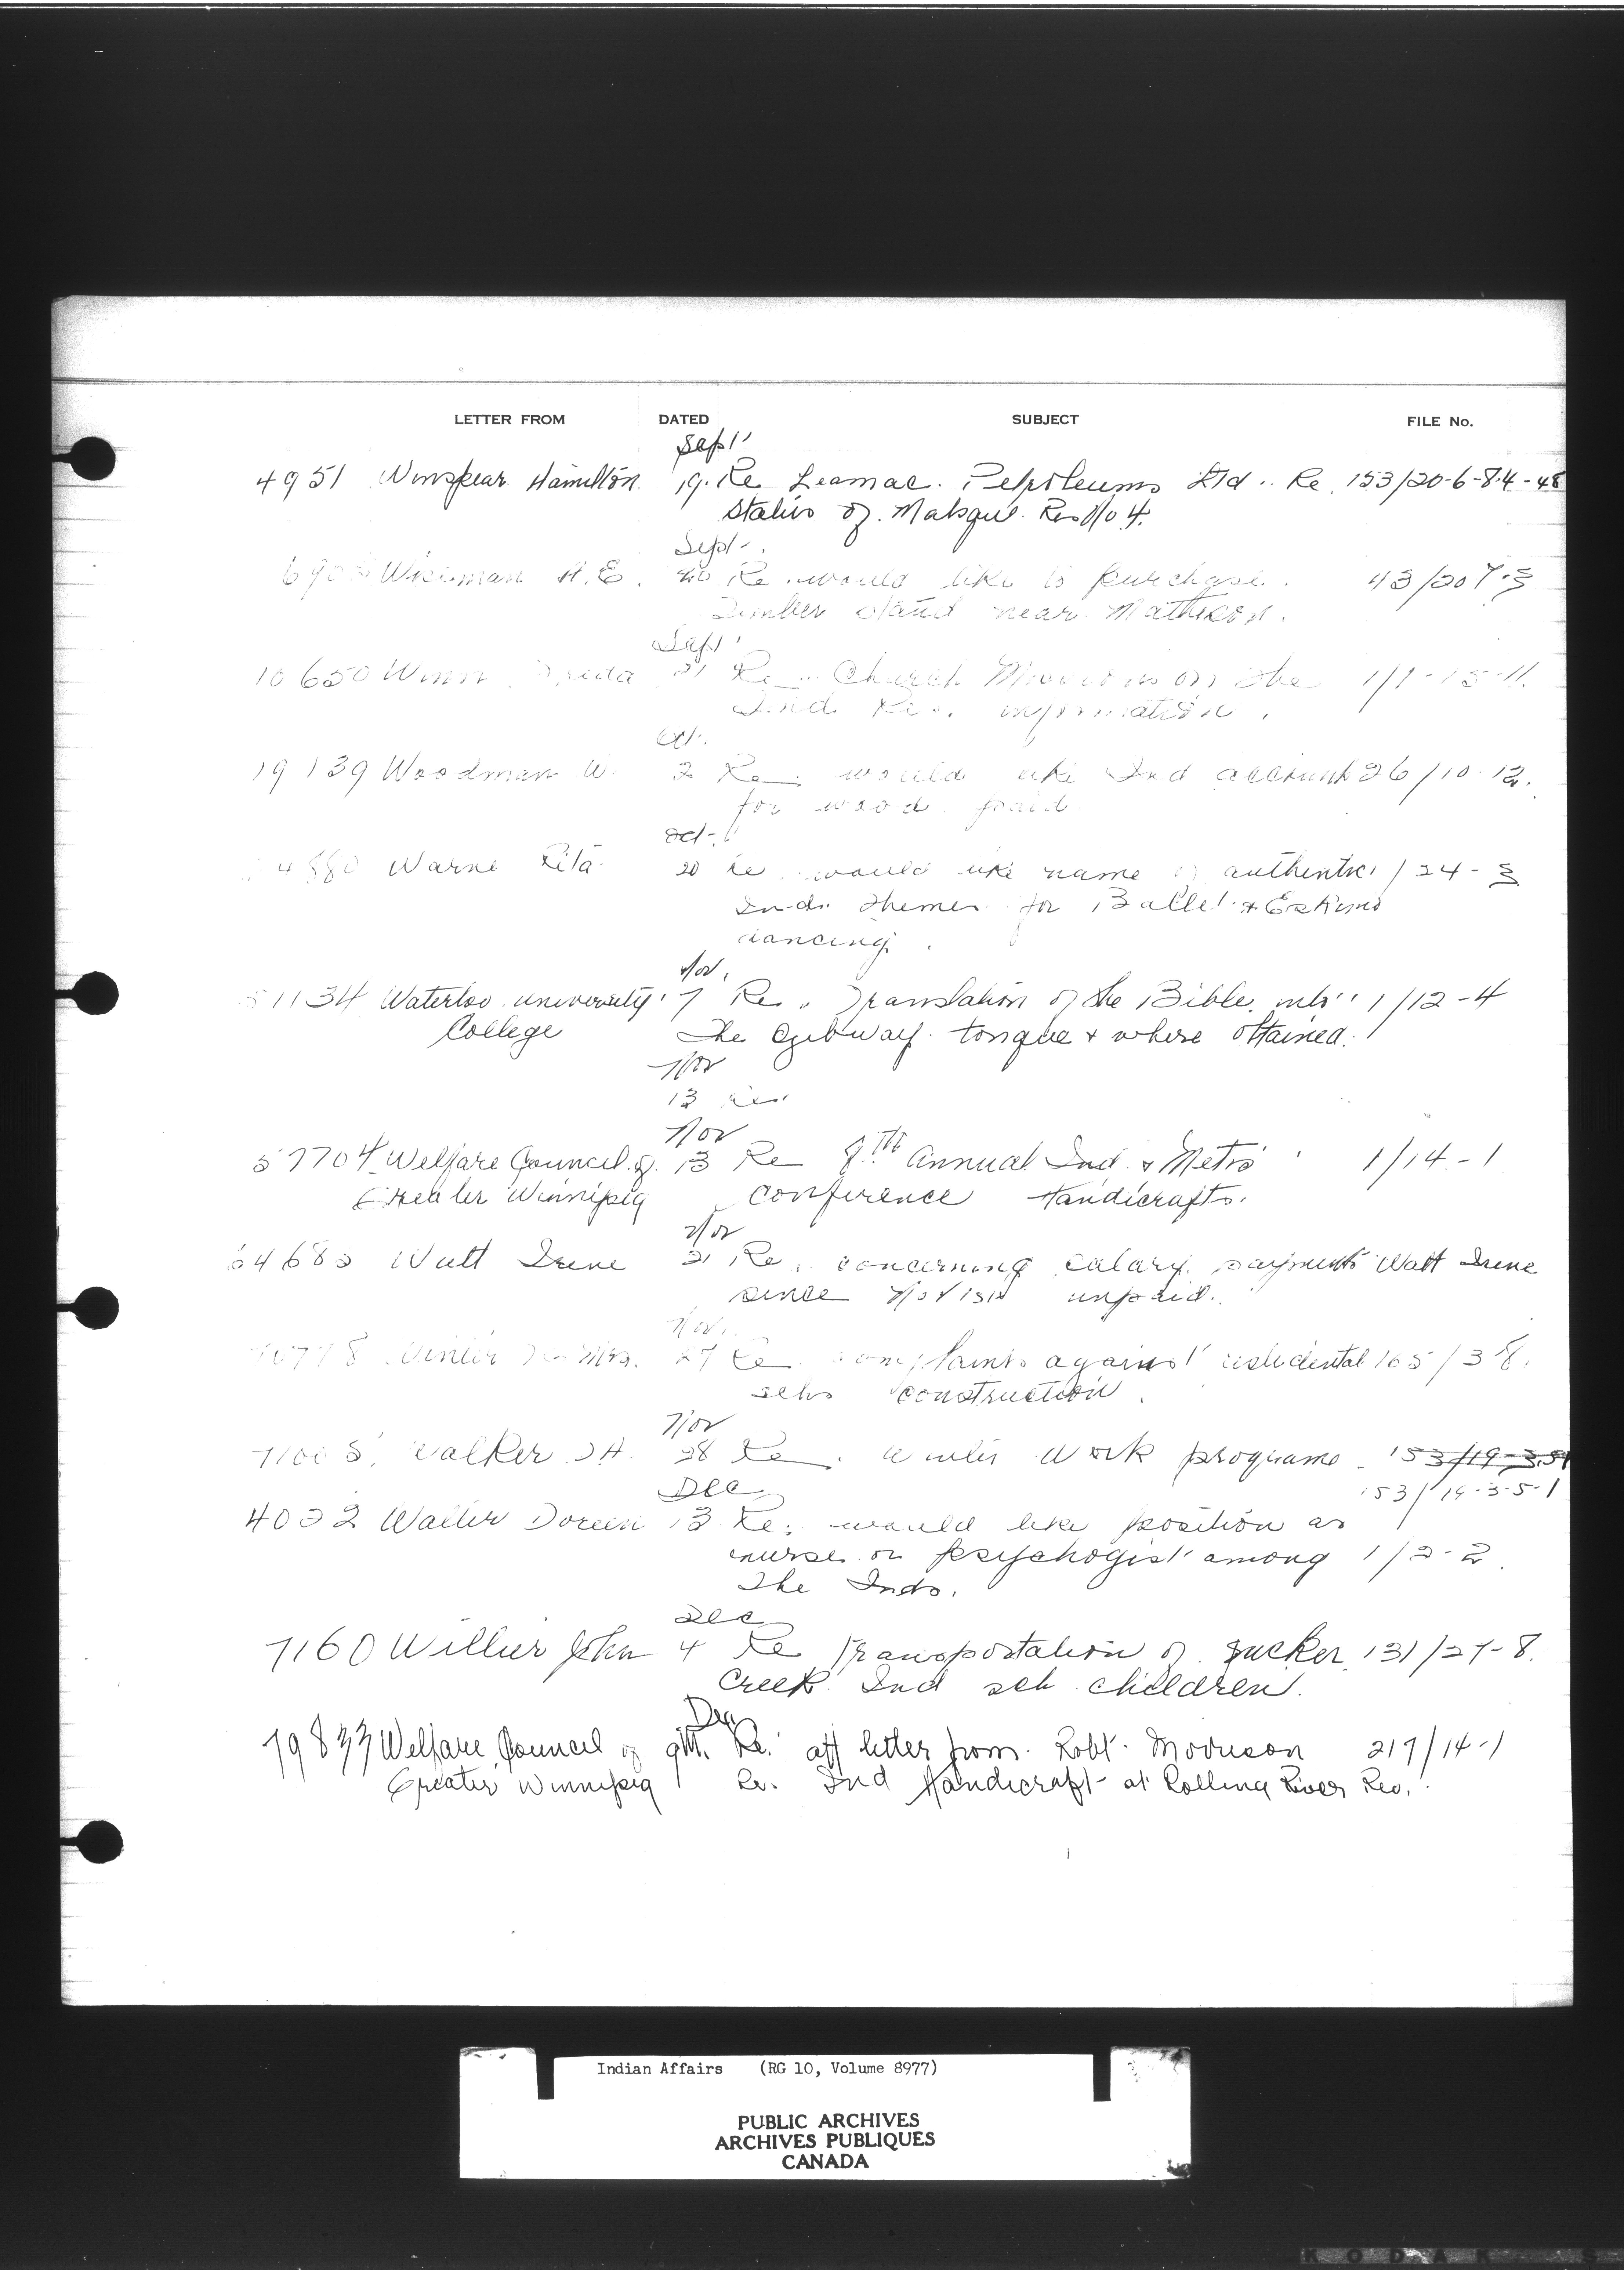 LETTER FROM DATED SUBJECT FILE No.
Sept
4951 Winspear Hamilton 19. Re Leamac. Petroleums Ltd.. Re 153/20-6-8-4-48
Status of. Matsqui Res No 4.
Sept.
H. E. Re would like to purchase. 43/20 7-3
Timber stand near Matheson.
Sept
10650 Winn 21 Re Church Missions on the 1/1-15-11.
Ind Res. information.
Oct.
19139 Woodman W. 2 Re would like Ind account 26/10-12.
for wood paid
Oct.
Warne Rita 20 Re would like name of authentic 1/24-3
Ind. themes for Ballet & Eskimo
dancing.
Nov.
51134 Waterloo university 7 Re. Translation of the Bible into 1/12-4
College the Ojibway tongue & where obtained.
Nov
13 Re
Nov
57704 Welfare Council of 13 Re 8TH Annual Ind & Metis 1/14-1
Greater Winnipeg Conference Handicrafts.
Nov
Watt Irene 21 Re. concerning salary payments Watt Irene
since Nov 1st unpaid.
Nov.
Winter Mrs. 27 Re complaints against residental 165/3-8.
schs construction.
Nov
Walker J H. 28 Re. Winter Work programe 153/19-3-5-1
Dec 153/19-3-5-1
4022 Walter Doreen 13 Re. would like position as
nurse or psychogist among 1/2-2.
the Inds.
Dec
7160 Willier John 4 Re Transportation of Sucker 131/27-8.
Creek Ind sch children.
Dec
79833 Welfare Council of 9th. Re. att letter from Robt. Morrison 217/14-1
Greater Winnipeg Re. Ind Handicraft at Rolling River Res.
Indian Affairs (RG 10, Volume 8977)
PUBLIC ARCHIVES
ARCHIVES PUBLIQUES
CANADA
KODAK S